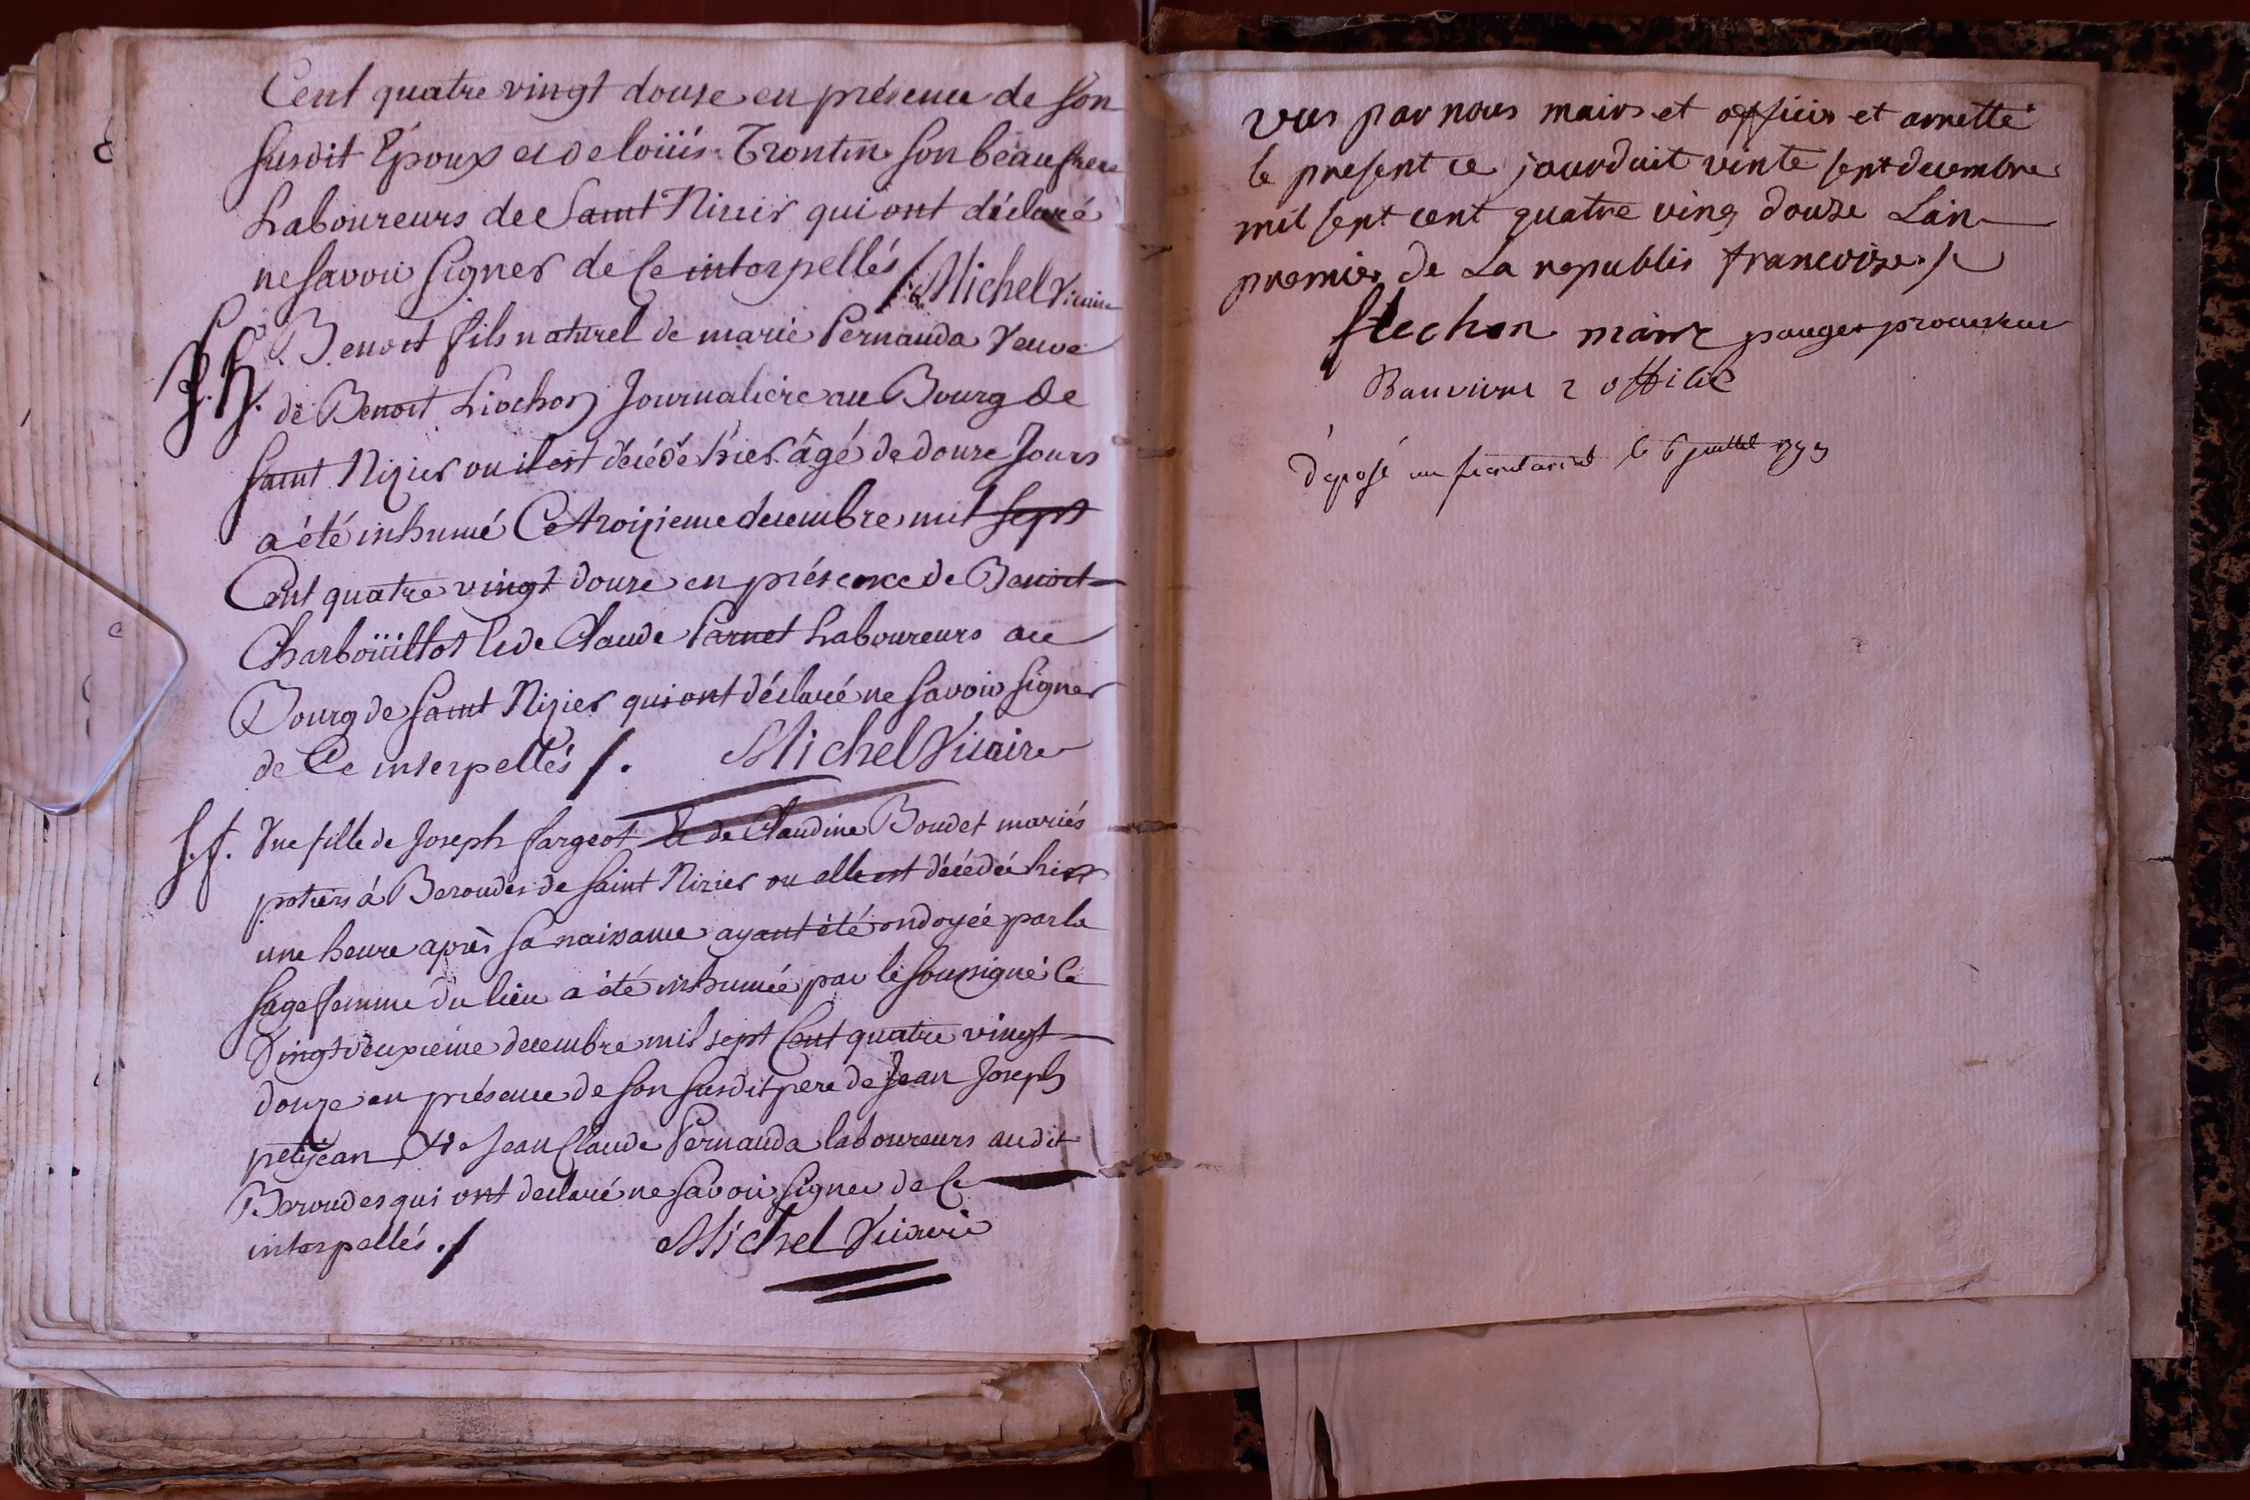 Cent quatre vingt douse en présence de son
susdit Époux et de loüis Trontin son beaufrere
Laboureurs de Saint Nisier qui ont déclaré
ne savoir signer de ce interpellés /. Michel Vicaire
Benoit fils naturel de marie Pernauda Veuve
de Benoit Liochon Journaliere au Bourg de
Saint Nizier ou il est décédé hier âgé de douze Jours
a été inhumé Ce troizieme décembre mil sept
Cent quatre vingt douze en présence de Benoit
Charboüillot & de Claude Parnet Laboureurs au
Bourg de Saint Nizier qui ont déclaré ne savoir signer
de Ce interpellés /. Michel Vicaire
f.f. Une fille de Joseph fargeot & de Claudine Boudet mariés
potiers à Beroudes de Saint Nizier ou elle est décédée hier
une heure après sa naissance ayant été ondoyée par la
sage femme du lieu a été inhumée par le soussigné le
Vingt deuxiéme decembre mil sept Cent quatre vingt
douze en présence de son susdit pere de Jean Joseph
petijean & de Jean Claude Pernauda laboureurs audit
Beroudes qui ont declaré ne savoir signer de Ce
interpellés ./ Michel Vicaire
vus par nous mair et officir et arretté
le present ce jourduit vinte sept decembre
mil sept cent quatre ving douze Lan
premier de La republis francoise ./.
flechon maire pauget procureur
Bauvivre 2 offilie
déposé au secretariat le 6 juillet 1793